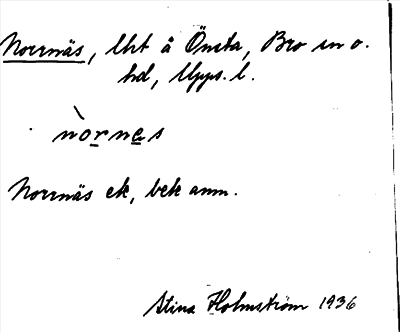 Norrnäs, lht å Önsta, Bro sn o.
hd, Upps. l.
nòrnes
Norrnäs ek, bek ann.
Stina Holmström 1936